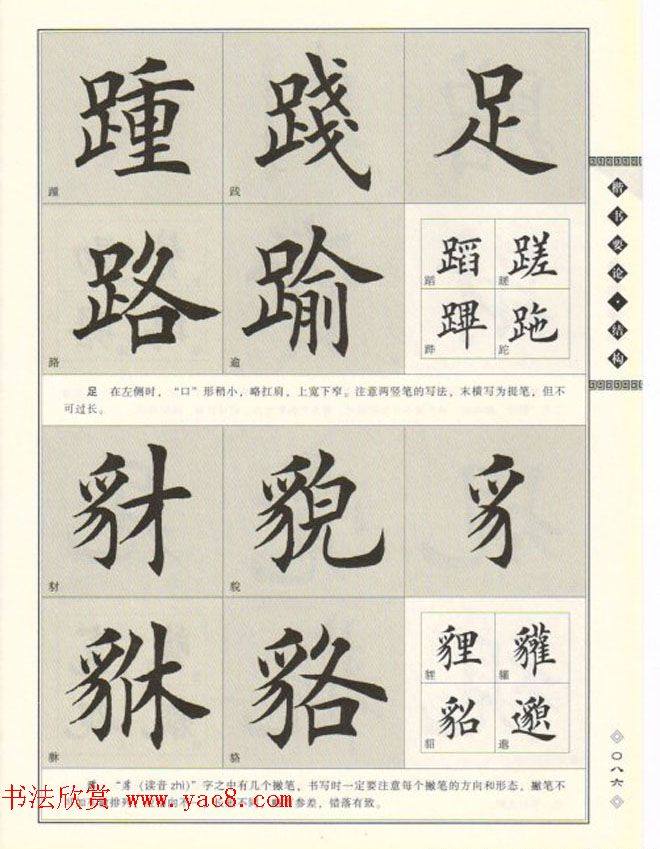 踵 踐 足
踵 践
路 踰 蹈 蹉
蹕 跎
路 逾 蹈 蹉
跸 跎
足 在左侧时，“口”形稍小，略扛肩，上宽下窄。注意两竖笔的写法，末横写为提笔，但不
可过长。
豺 貌 豸
豺 貌
貅 貉 貍 貛
貂 邈
貅 貉 貂 邈
豸 “豸（读音zhì）”字之中有几个撇笔，书写时一定要注意每个撇笔的方向和形态，撇笔不
参差，错落有致。
楷书要论·结构
〇八六
书法欣赏 www.yac8.com